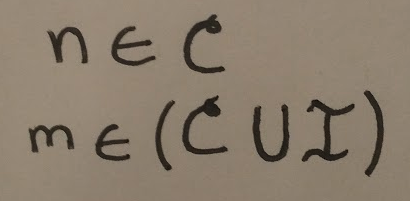 n ∈ C
m ∈ (C ∪ I)